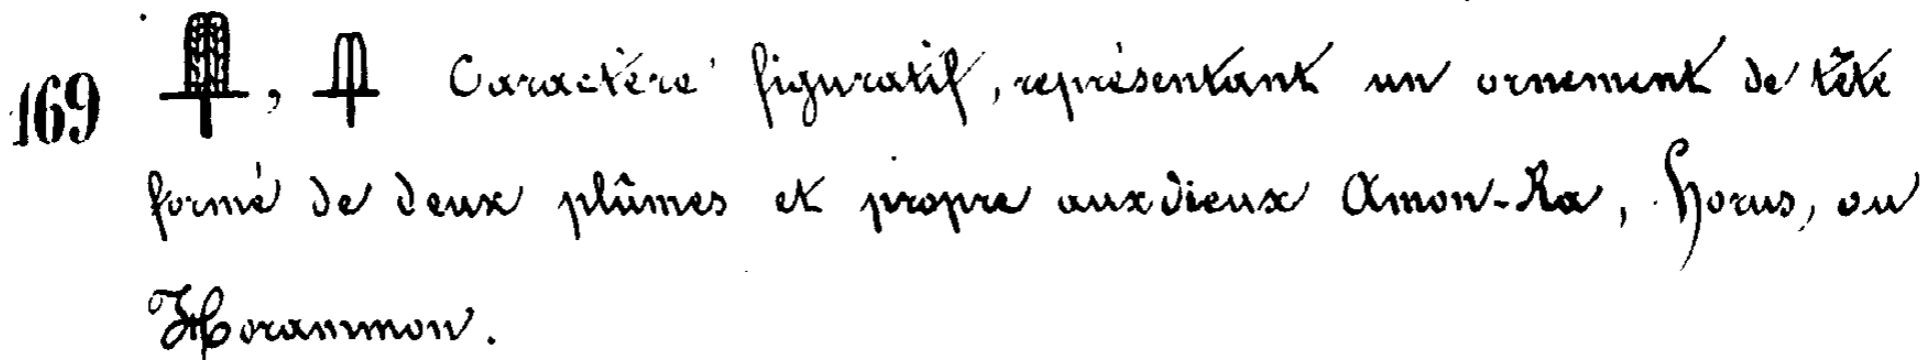 169 𓋛, 𓋛 Caractère figuratif, représentant un ornement de tête
formé de deux plûmes et propre aux dieux Amon-Ra, Horus, ou
Horammon.